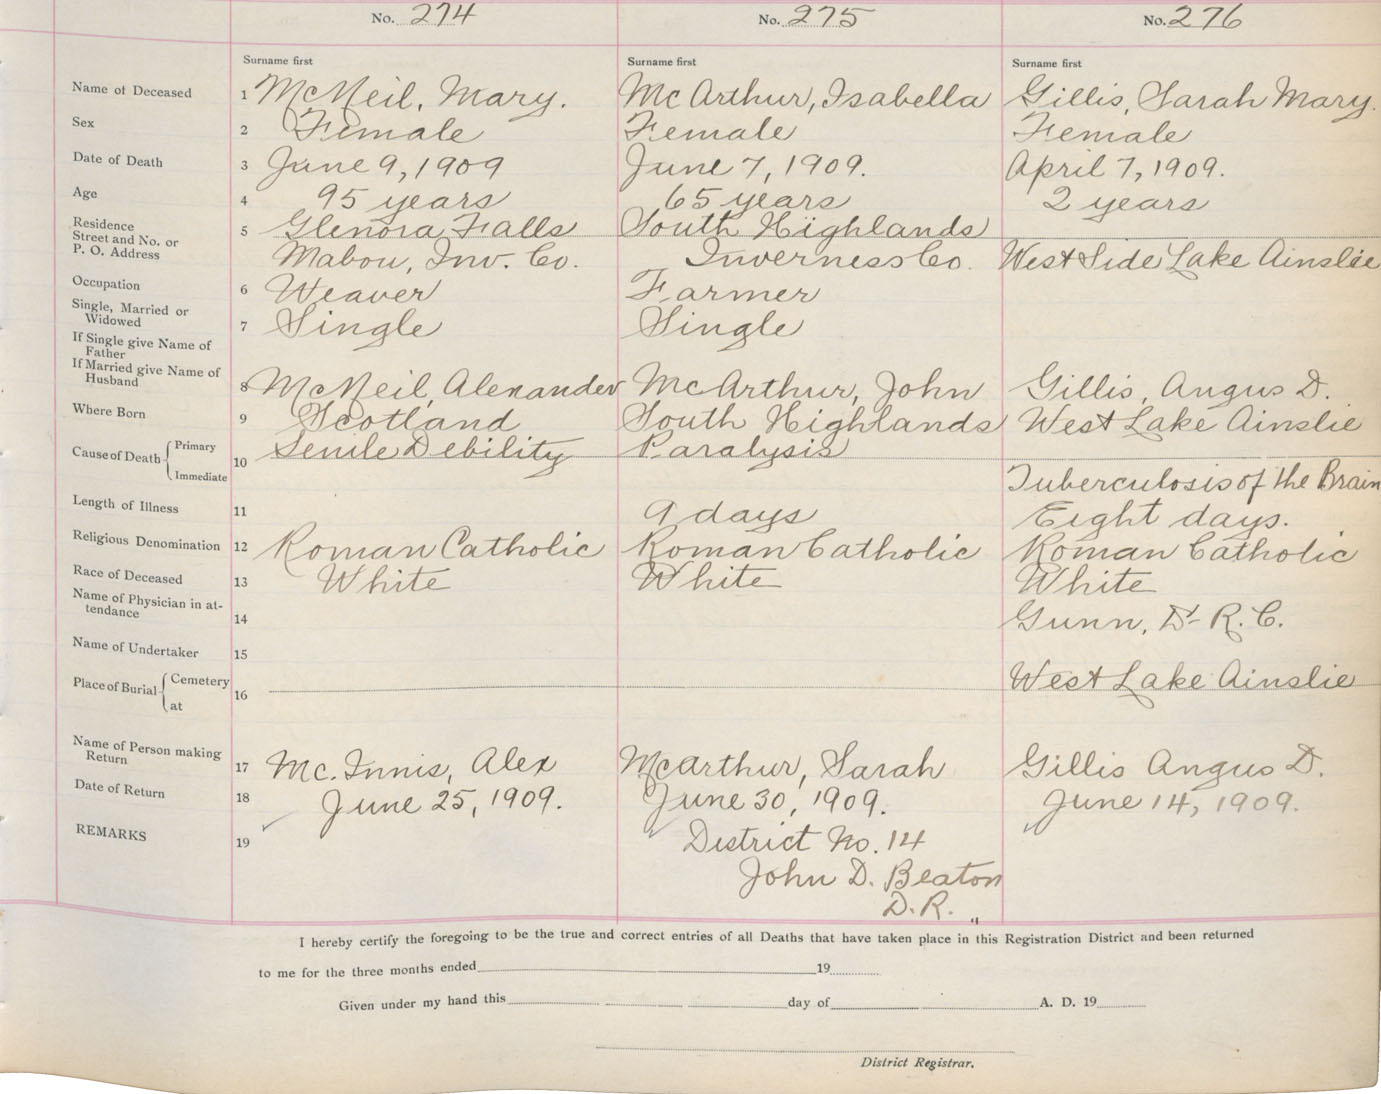 No. 274 No. 275 No. 276
Surname first Surname first Surname first
Name of Deceased 1 McNeil, Mary. McArthur, Isabella Gillis, Sarah Mary.
Sex 2 Female Female Female
Date of Death 3 June 9, 1909 June 7, 1909. April 7, 1909.
Age 4 95 years 65 years 2 years
Residence
Street and No. or 5 Glenora Falls South Highlands
P. O. Address Mabou, Inv. Co. Inverness Co. West Side Lake Ainslie
Occupation 6 Weaver Farmer
Single, Married or
Widowed 7 Single Single
If Single give Name of
Father
If Married give Name of
Husband 8 McNeil, Alexander McArthur, John Gillis, Angus D.
Where Born 9 Scotland South Highlands West Lake Ainslie
Cause of Death Primary 10 Senile Debility Paralysis
Immediate Tuberculosis of the Brain
Length of Illness 11 9 days Eight days.
Religious Denomination 12 Roman Catholic Roman Catholic Roman Catholic
Race of Deceased 13 White White White
Name of Physician in at-
tendance 14 Gunn, Dr R. C.
Name of Undertaker 15
Place of Burial Cemetery 16 West Lake Ainslie
at
Name of Person making
Return 17 Mc.Innis, Alex McArthur, Sarah Gillis Angus D.
Date of Return 18 June 25, 1909. June 30, 1909. June 14, 1909.
REMARKS 19 District No. 14
John D. Beaton
D.R. "
I hereby certify the foregoing to be the true and correct entries of all Deaths that have taken place in this Registration District and been returned
to me for the three months ended 19
Given under my hand this day of A. D. 19
District Registrar.